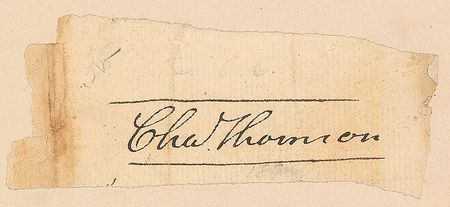 Cha.ˢ Thomson